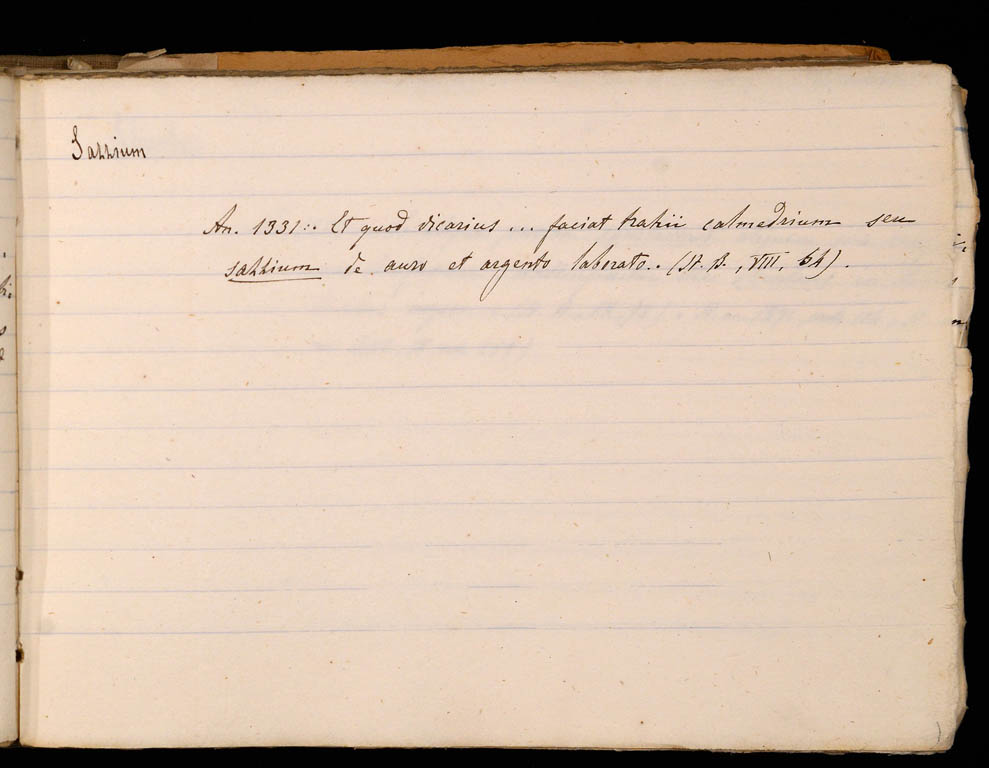 Sazzium
An. 1331: Et quod vicarius ... faciat trahii calmedrium seu
sazzium de auro et argento laborato.. (St. B., VIII, ).